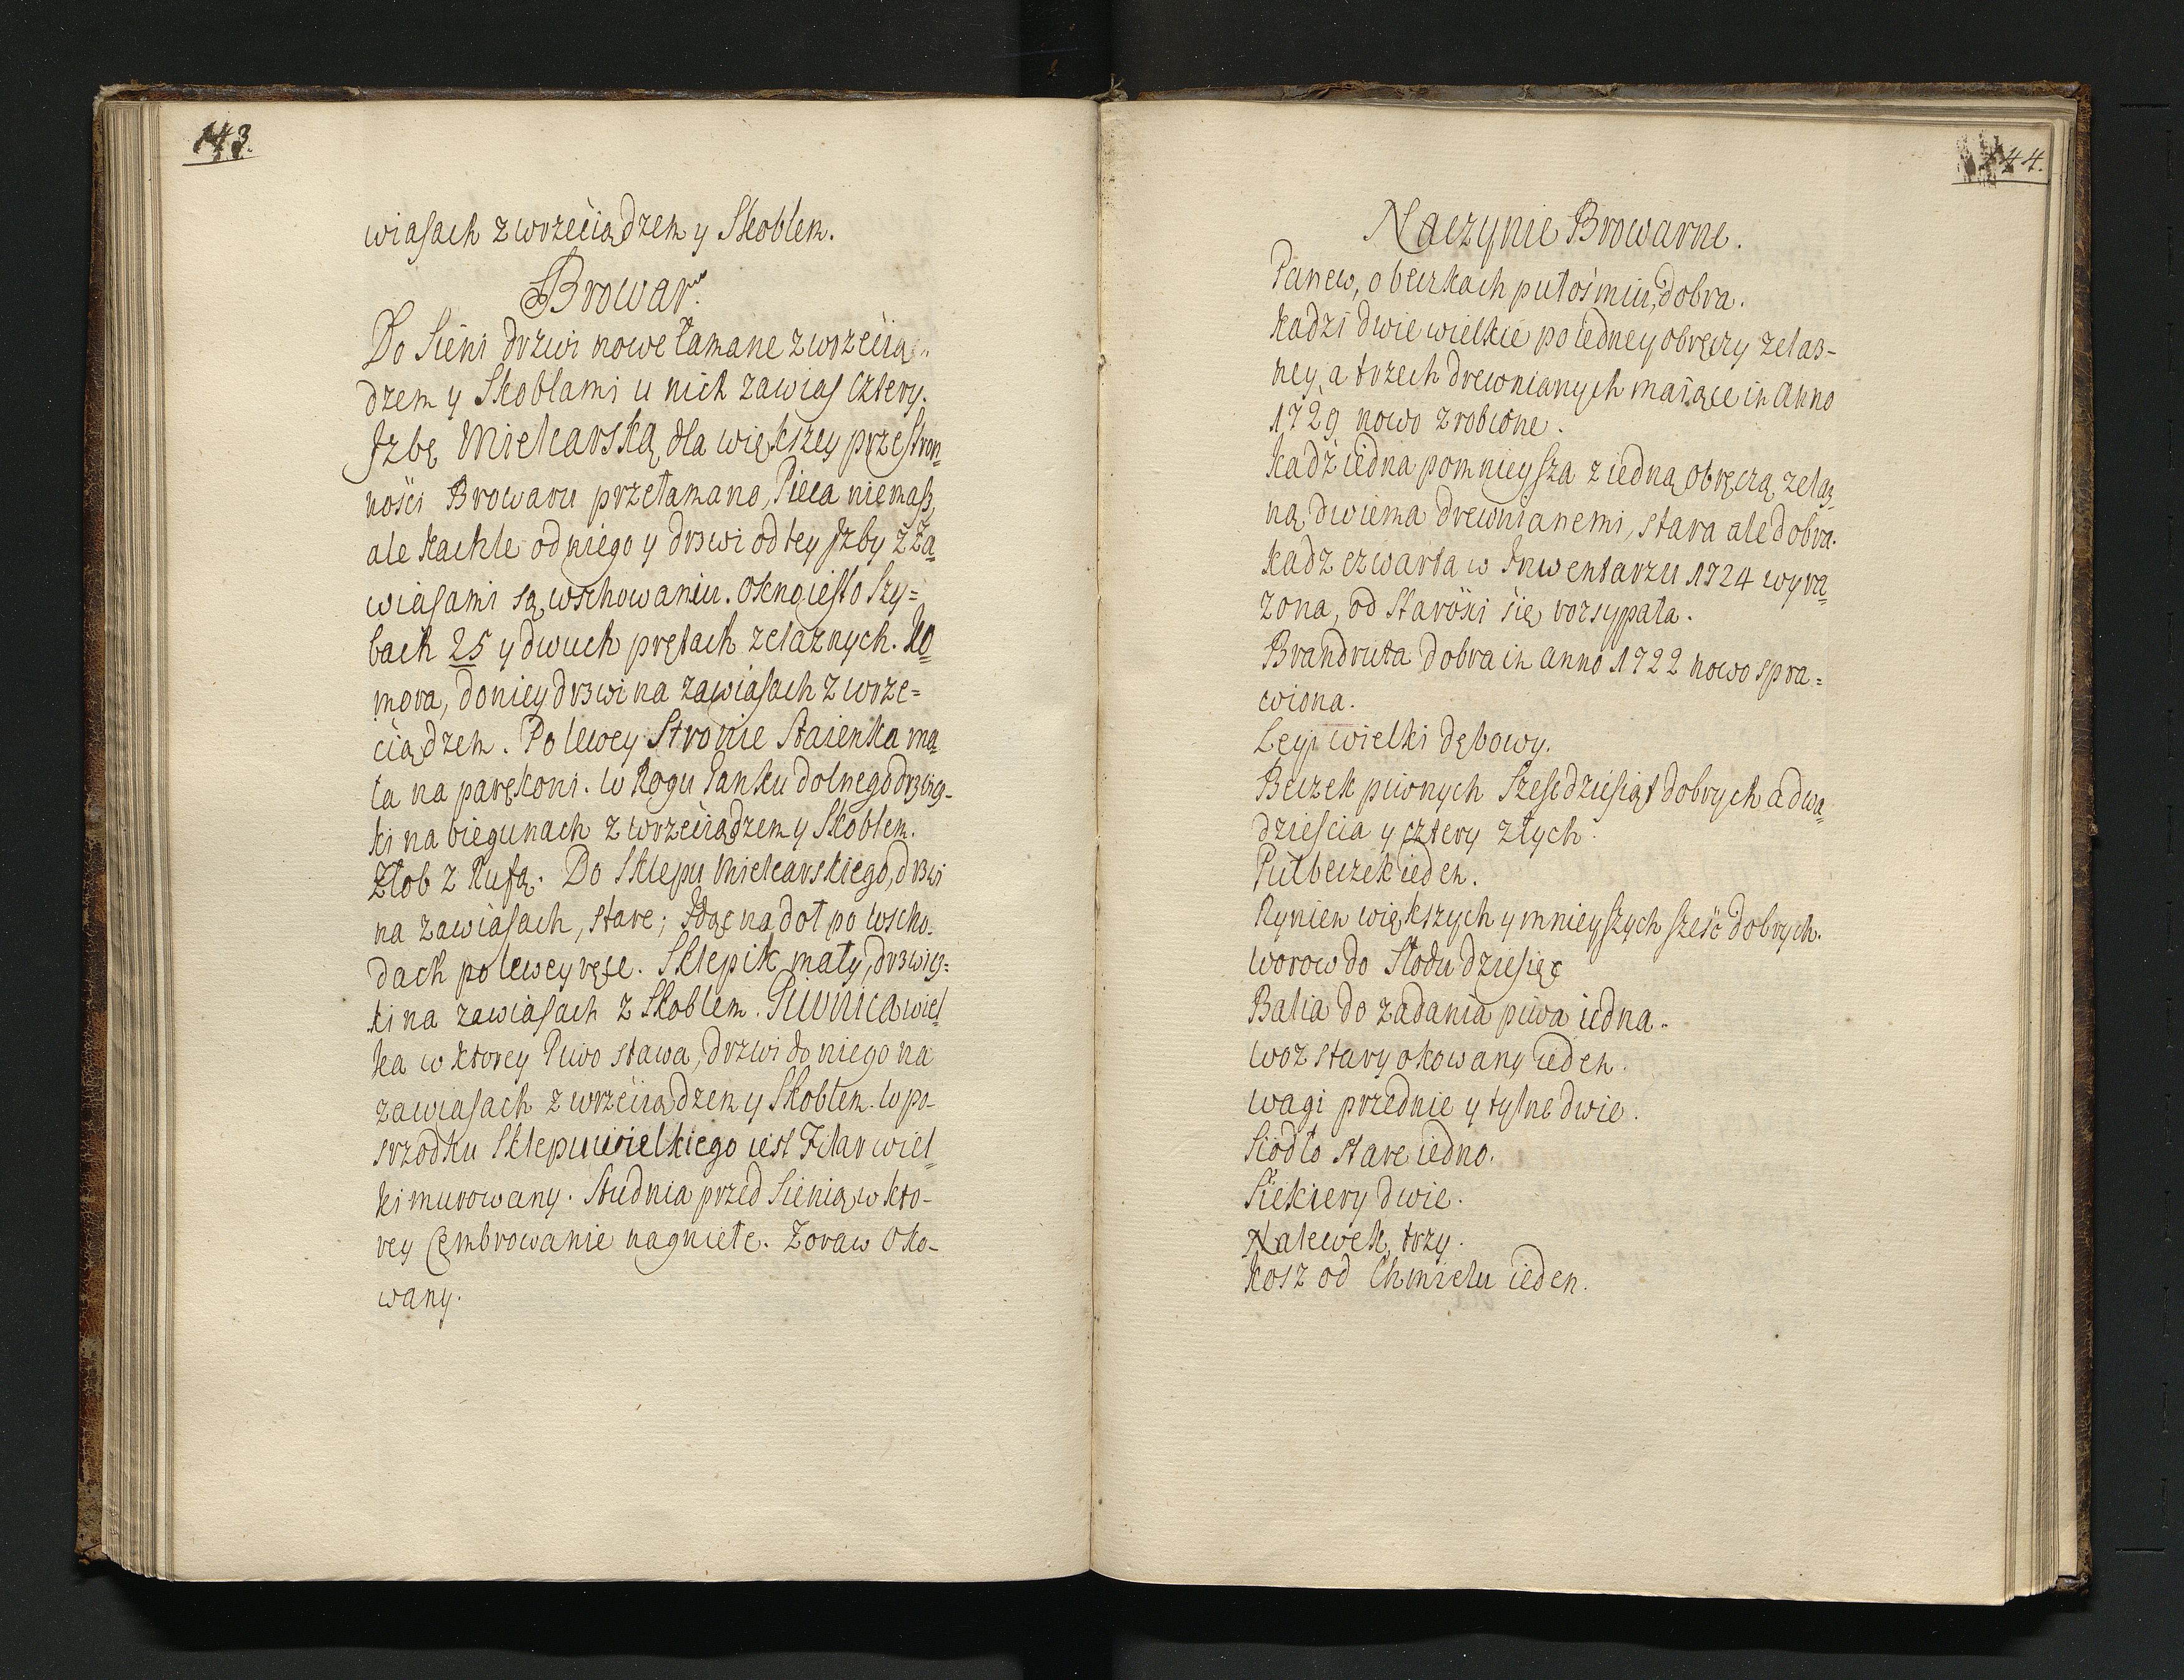 143.
wiasach z wrzeciądzem y Skoblem.
Browar.
Do Sieni drzwi nowe łamane z wrzecią-
dzem y Skoblami u nich zawias cztery.
Izbę Mielcarską dla większey przestron-
ności Browaru przełamano, Pieca niemasz,
ale kachle od niego y drzwi od tey Izby z Za=
wiasami są w schowaniu. Okno iest o Szy=
bach 25 y dwuch prętach zelaznych. Ko=
mora, do niey drzwi na zawiasach z wrze=
ciądzem. Po lewey Stronie Staienka ma=
ła na parę koni. W Rogu Ganku dolnego drzwicz-
ki na biegunach z wrzeciądzem y Skoblem.
Złob z Kufą. Do Sklepu Mielcarskiego, drzwi
na zawiasach, stare; Idąc na doł po wscho-
dach po lewey ręce. Sklepik mały, drzwicz=
ki na zawiasach z Skoblem. Piwnica wiel=
ka w ktorey Piwo stawa, drzwi do niego na
zawiasach z wrzeciądzem y Skoblem. W po-
srzodku Sklepu wielkiego iest Filar wiel=
ki murowany. Studnia przed Sienią w kto-
rey Cembrowanie nagniełe. Zoraw Oko-
wany.
144.
Naczynie Browarne.
Panew, o beczkach pułosmiu, dobra.
Kadzi dwie wielkie po iedney obręczy zelaz-
ney, a trzech drewnianych maiące in Anno
1729 nowo zrobione.
Kadź iedna pomnieysza z iedną obręczą zelaz=
ną dwiema drewnianemi, stara ale dobra.
Kadz czwarta w Inwentarzu 1724 wyra=
zona, od Starości się rozsypała.
Brandruta dobra in anno 1722 nowo spra=
wiona.
Leyi wielki dębowy.
Beczek piwnych Szescdziesiąt dobrych a dwa=
dziescia y cztery złych.
Pułbeczek ieden.
Rynien większych y mnieyszych sześć dobrych.
Worow do Słodu dziesięć
Balia do zadania piwa iedna.
Woz stary okowany ieden.
Wagi przednie y tylne dwie.
Siodło stare iedno.
Siekiery dwie.
Nalewek trzy.
Kosz od Chmielu ieden.